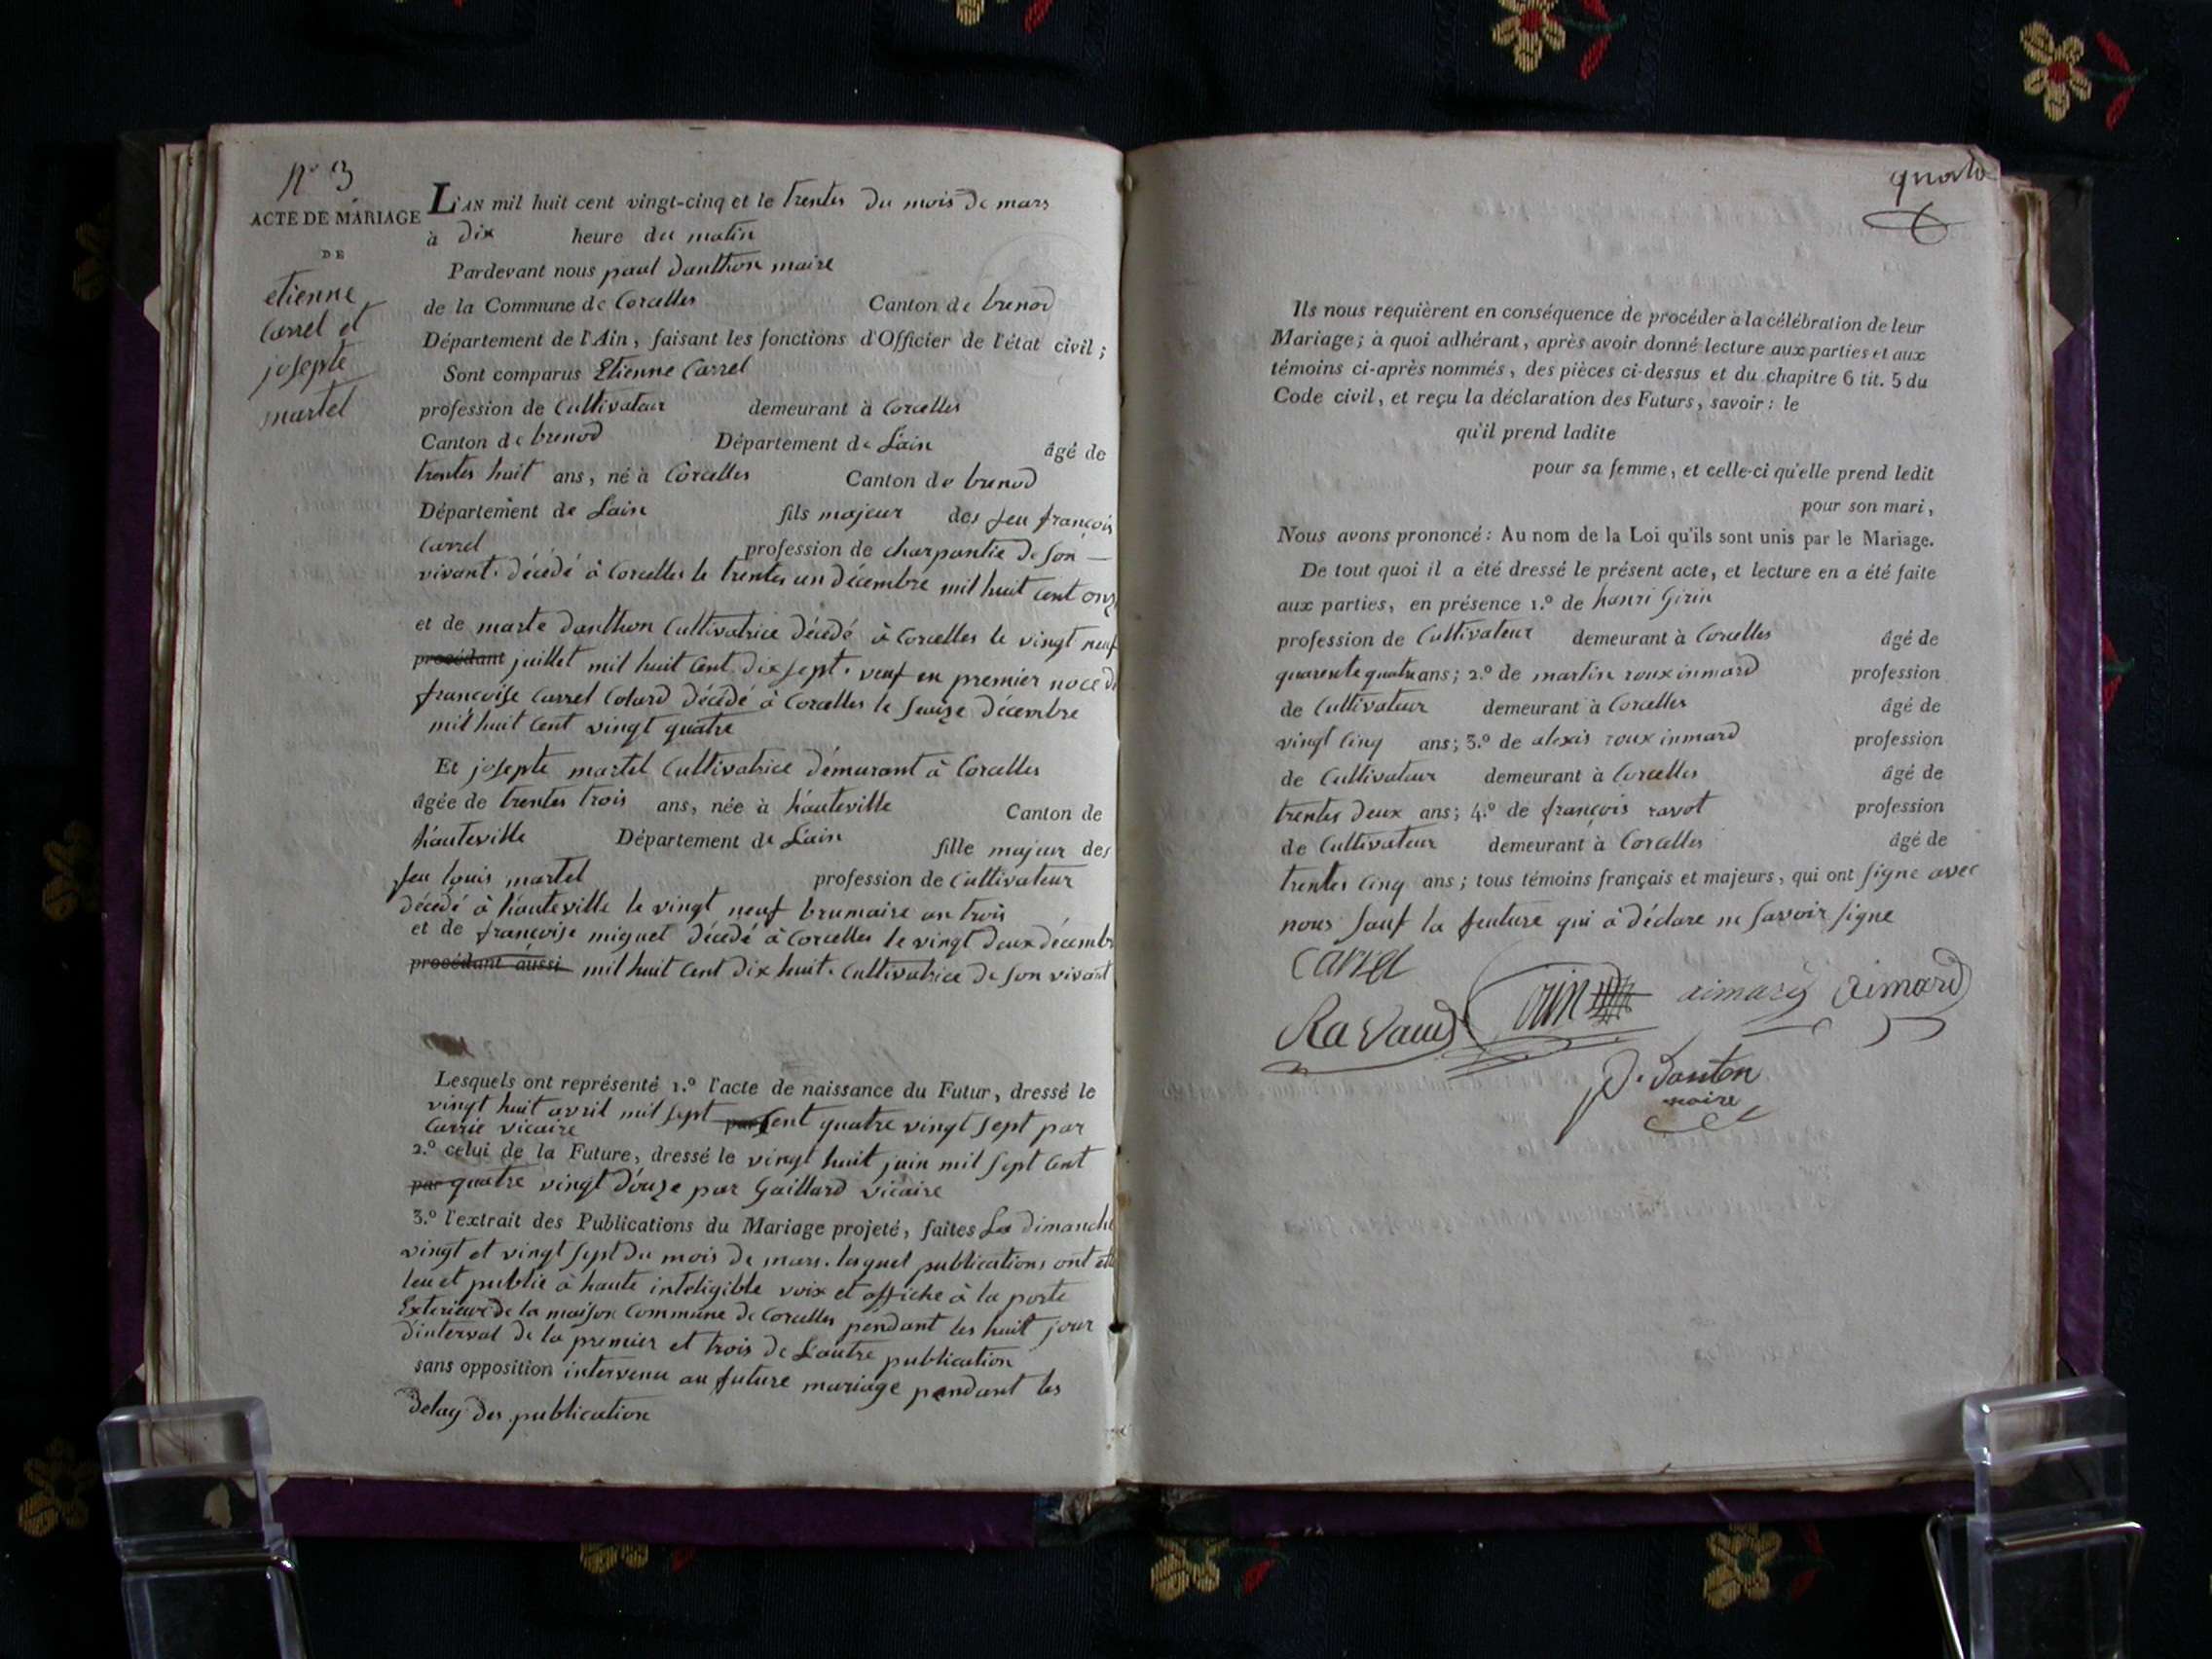 N° 3
ACTE DE MARIAGE
DE
etienne
Carrel et
josepte
martel
L'AN mil huit cent vingt-cinq et le trentes du mois de mars
à dix heure du matin
Pardevant nous paul danthon maire
de la Commune de Corcelles Canton de brenod
Département de l'Ain, faisant les fonctions d'Officier de l'état civil;
Sont comparus Etienne Carrel
profession de Cultivateur demeurant à Corcelles
Canton de brenod Département de Lain âgé de
trentes huit ans, né à Corcelles Canton de brenod
Département de Lain fils majeur des feu françois
Carrel profession de charpantie de son
vivant. décédé à Corcelles le trentes un décembre mil huit Cent onz
et de marte danthon Cultivatrice décédé à Corcelles le vingt neuf
procédant juillet mil huit Cent dix sept. veuf en premier noce de
françoise Carrel Cotard décédé à Corcelles le seuize décembre
mil huit Cent vingt quatre
Et josepte martel Cultivatrice démurant à Corcelles
âgée de trentes trois ans, née à hauteville Canton de
hauteville Département de Lain fille majeur des
feu louis martel profession de Cultivateur
décédé à hauteville le vingt neuf brumaire an trois
et de françoise miguet décédé à Corcelles le vingt deux décembr
procédant aussi mil huit Cent dix huit. Cultivatrice de son vivant
Lesquels ont représenté 1.º l'acte de naissance du Futur, dressé le
vingt huit avril mil sept par Cent quatre vingt sept par
Carrie vicaire
2.º celui de la Future, dressé le vingt huit juin mil sept Cent
par quatre vingt douze par Gaillard vicaire
3.º l'extrait des Publications du Mariage projeté, faites Les dimanche
vingt et vingt sept du mois de mars. lesquel publications ont été
leu et publié à haute inteligible voix et affiche à la porte
Exterieur de la maison Commune de Corcelles pendant les huit jour
d'interval de la premier et trois de L'autre publication
sans opposition intervenu au future mariage pendant les
delay des publication
quarto
Ils nous requièrent en conséquence de procéder à la célébration de leur
Mariage; à quoi adhérant, après avoir donné lecture aux parties et aux
témoins ci-après nommés, des pièces ci-dessus et du chapitre 6 tit. 5 du
Code civil, et reçu la déclaration des Futurs, savoir: le
qu'il prend ladite
pour sa femme, et celle-ci qu'elle prend ledit
pour son mari,
Nous avons prononcé: Au nom de la Loi qu'ils sont unis par le Mariage.
De tout quoi il a été dressé le présent acte, et lecture en a été faite
aux parties, en présence 1.º de hanri Girin
profession de Cultivateur demeurant à Corcelles âgé de
quarente quatre ans; 2.º de martin roux inmard profession
de Cultivateur demeurant à Corcelles âgé de
vingt Cinq ans; 3.º de alexis roux inmard profession
de Cultivateur demeurant à Corcelles âgé de
trentes deux ans; 4.º de françois ravot profession
de Cultivateur demeurant à Corcelles âgé de
trentes Cinq ans; tous témoins français et majeurs, qui ont signe avec
nous sauf la feuture qui à déclare ne savoir signe
carrel
Ravaud aimard aimard
P. Danton
maire